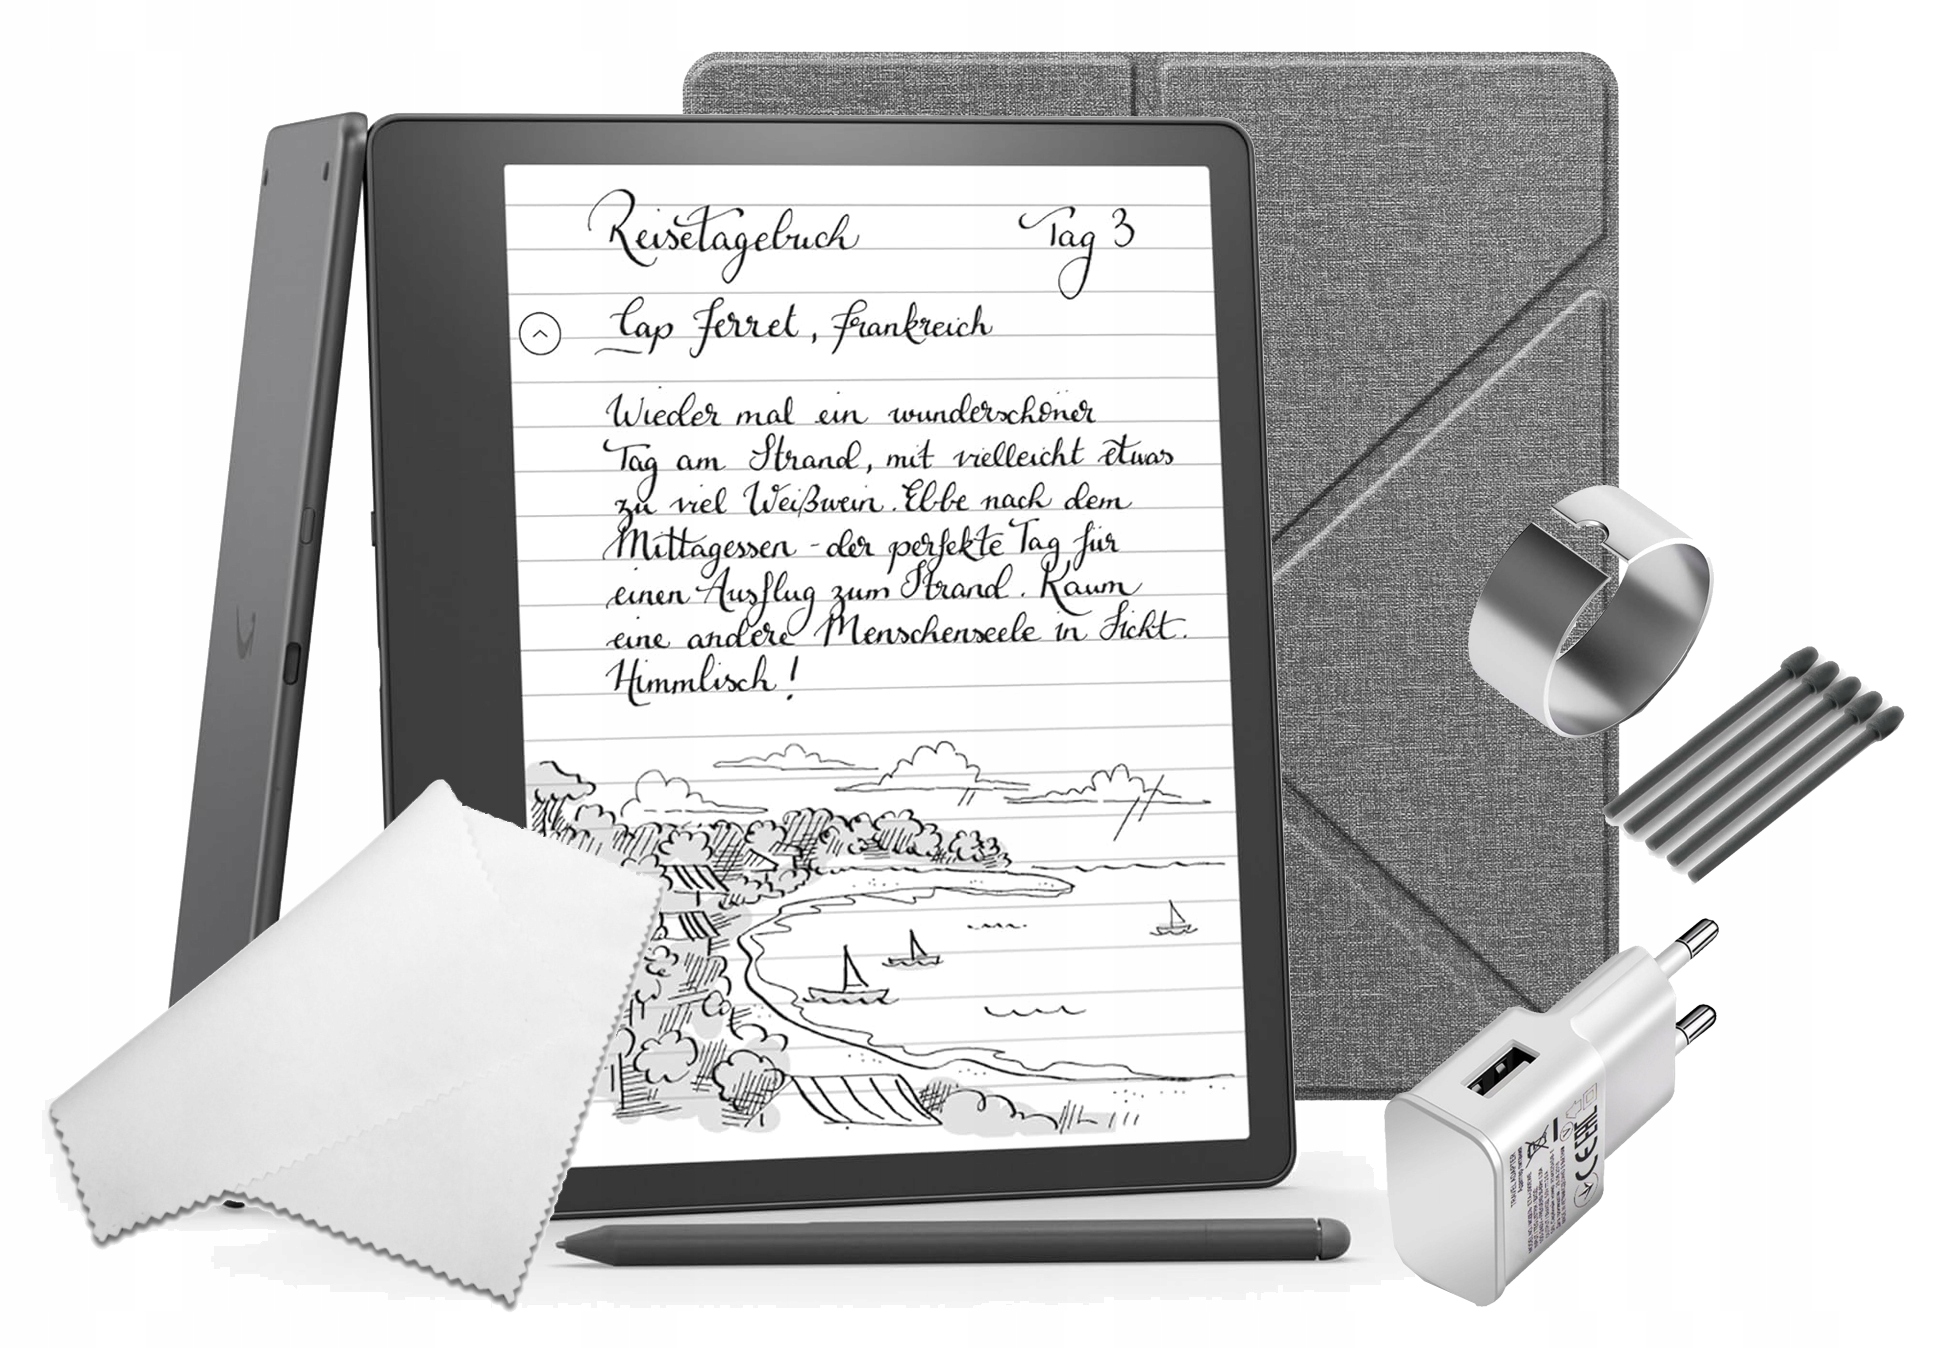 Reisetagebuch Tag 3
Cap Ferret, Frankreich
Wieder mal ein wunderschöner
Tag am Strand, mit vielleicht etwas
zu viel Weißwein. Ebbe nach dem
Mittagessen - der perfekte Tag für
einen Ausflug zum Strand. Kaum
eine andere Menschenseele in Sicht.
Himmlisch!
TRAVEL ADAPTER
CE EAC